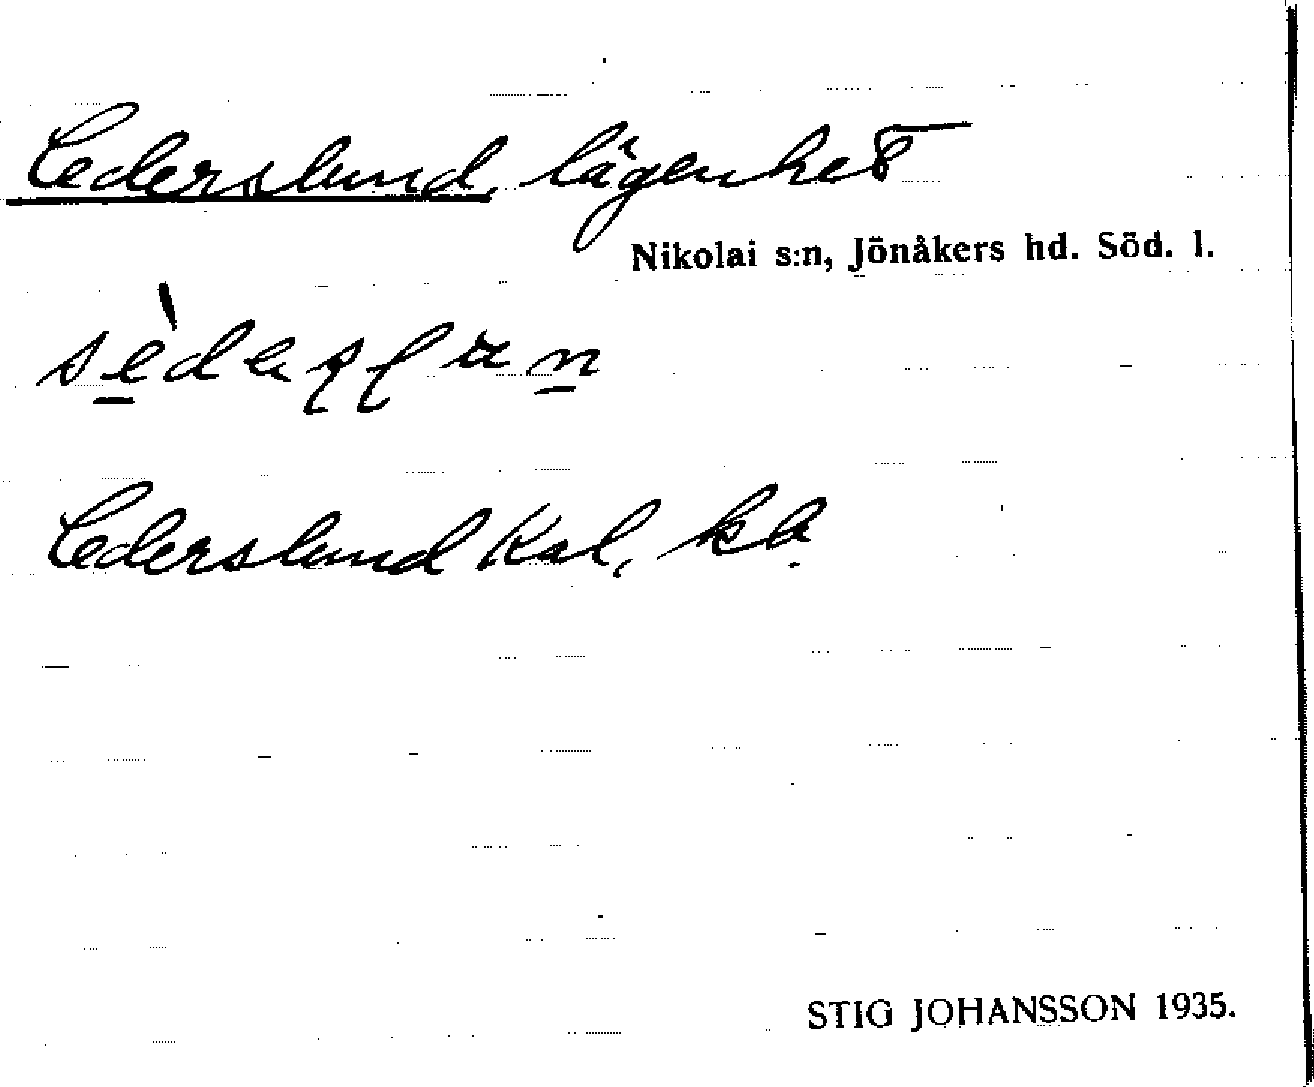 Cederslund, lägenhet
Nikolai s:n, Jönåkers hd. Söd. l.
Cederslund Kal, kb.
STIG JOHANSSON 1935.